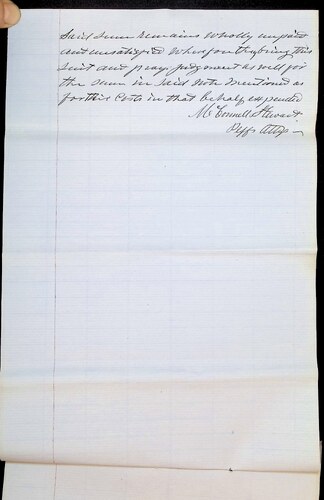 Said sum remains wholly unpaid
and unsatisfied Wherefore they bring this
suit and pray judgment as well for
the sum in said note mentioned as
for this Costs in that behalf expended
McConnell & Stewart
Plffs Attys